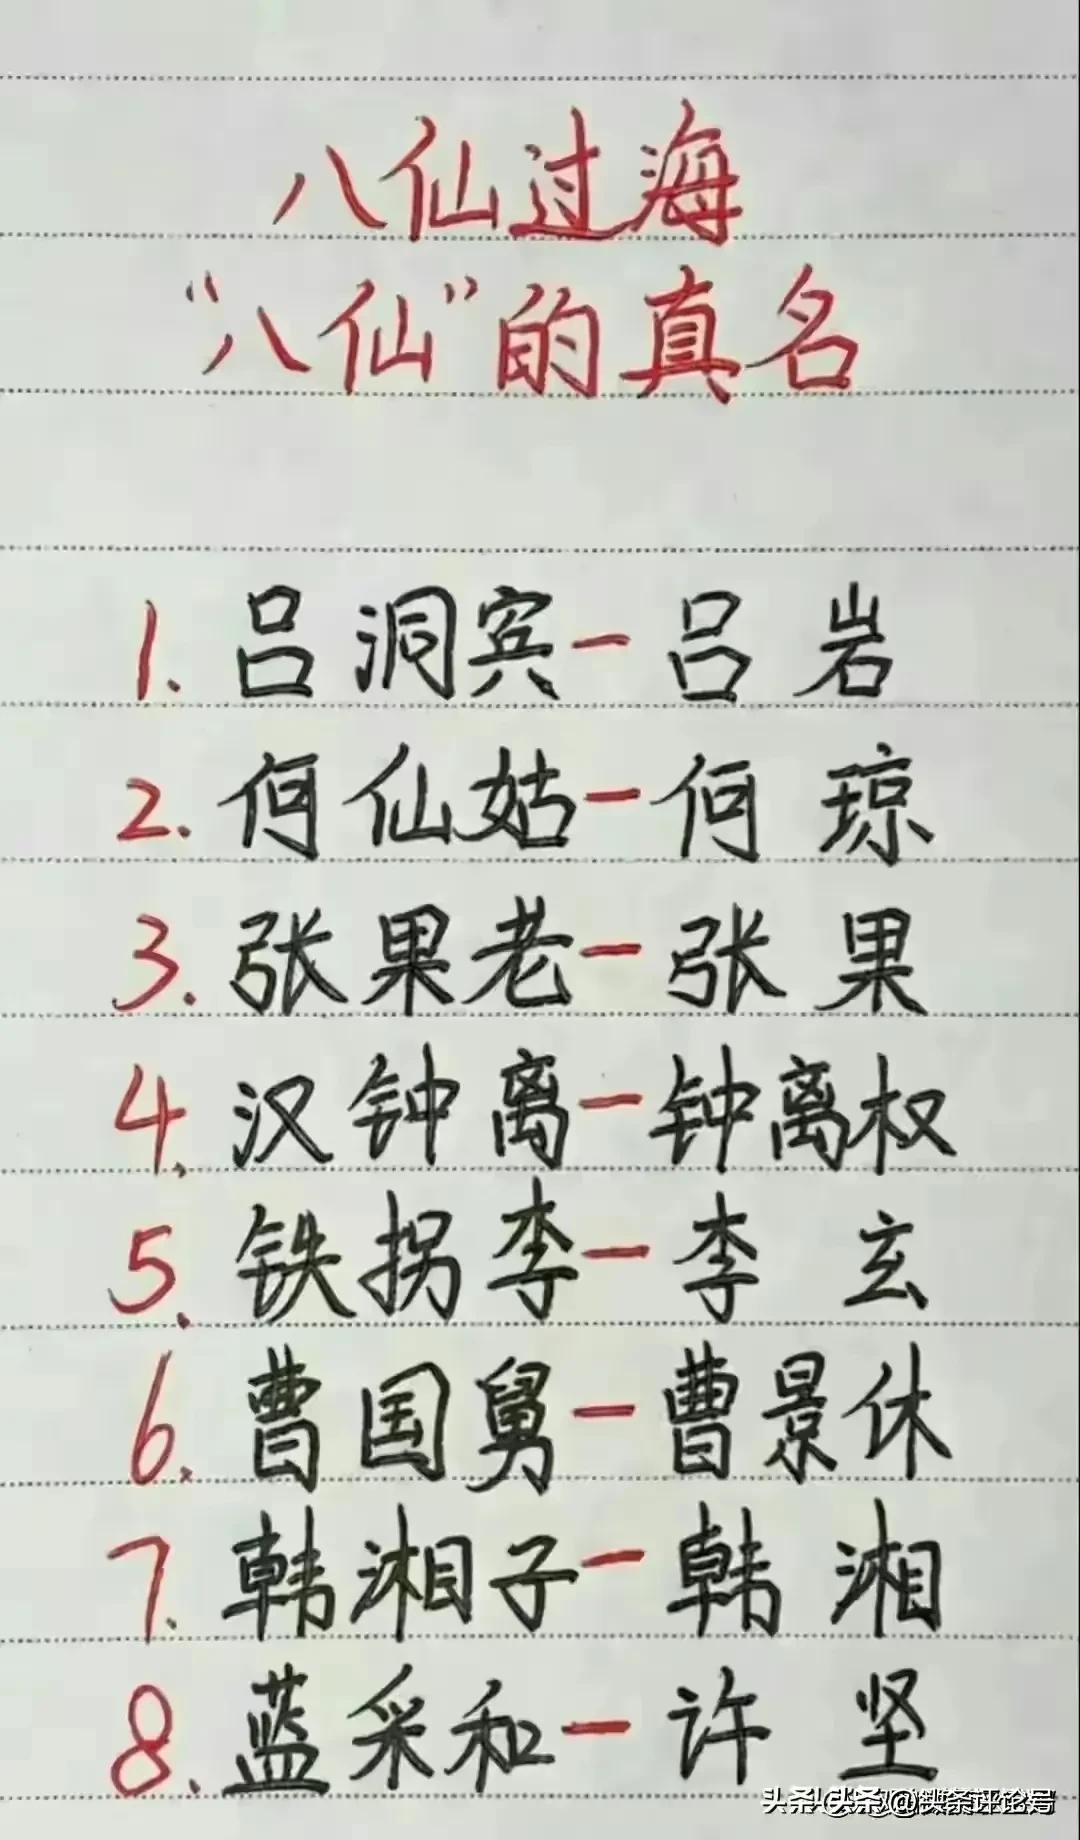 八仙过海
“八仙”的真名
1. 吕洞宾－吕岩
2. 何仙姑－何琼
3. 张果老－张果
4. 汉钟离－钟离权
5. 铁拐李－李玄
6. 曹国舅－曹景休
7. 韩湘子－韩湘
8. 蓝采和－许坚
头条
头条评论号